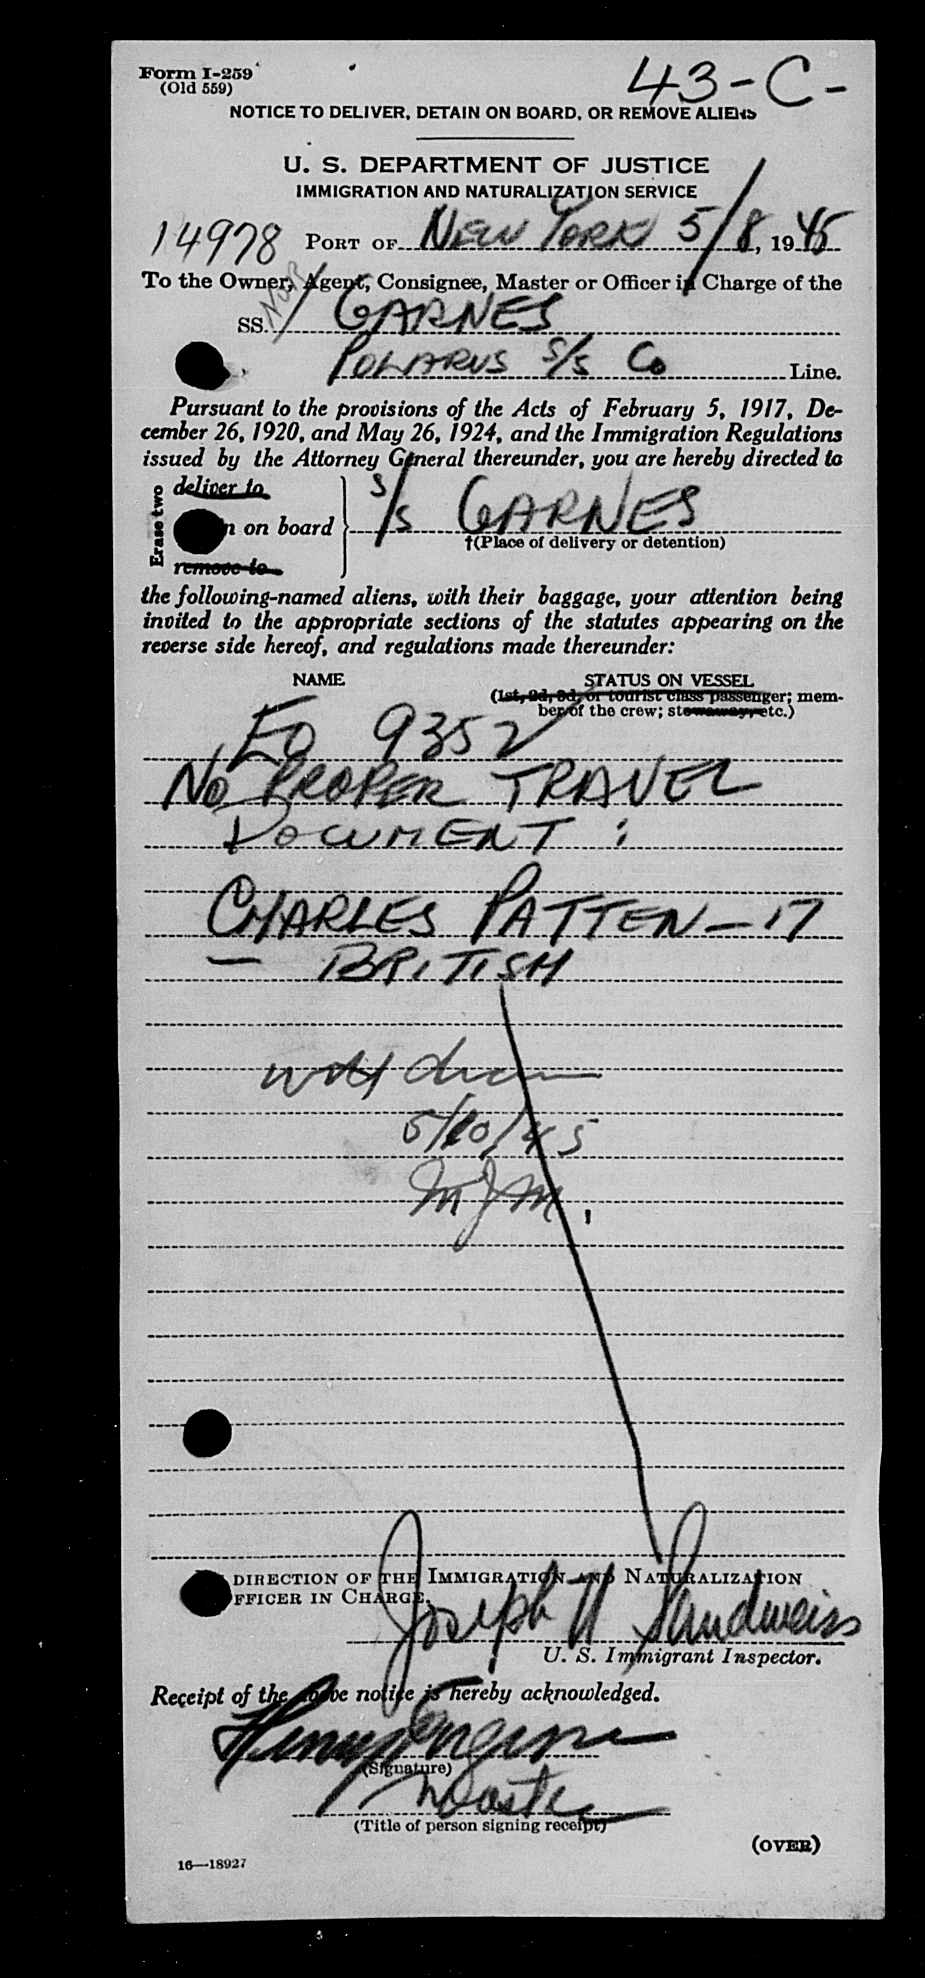 Form I-259
(Old 559)
43-C-
NOTICE TO DELIVER, DETAIN ON BOARD, OR REMOVE ALIENS
U. S. DEPARTMENT OF JUSTICE
IMMIGRATION AND NATURALIZATION SERVICE
14978 PORT OF NEW YORK 5/8, 1945
To the Owner, Agent, Consignee, Master or Officer in Charge of the
SS. Nor/ GARNES
POLARUS S/S Co Line.
Pursuant to the provisions of the Acts of February 5, 1917, De-
cember 26, 1920, and May 26, 1924, and the Immigration Regulations
issued by the Attorney General thereunder, you are hereby directed to
Erase two
deliver to
n on board S/S GARNES
remove to
†(Place of delivery or detention)
the following-named aliens, with their baggage, your attention being
invited to the appropriate sections of the statutes appearing on the
reverse side hereof, and regulations made thereunder:
NAME STATUS ON VESSEL
(1st, 2d, 3d, or tourist class passenger; mem-
ber of the crew; stowaway, etc.)
EO 9352
NO PROPER TRAVEL
DOCUMENT :
CHARLES PATTEN - 17
- BRITISH
5/10/45
MJM.
DIRECTION OF THE IMMIGRATION AND NATURALIZATION
FFICER IN CHARGE.
Joseph Sandweiss
U. S. Immigrant Inspector.
Receipt of the above notice is hereby acknowledged.
(Signature)
Master
(Title of person signing receipt)
(OVER)
16—18927